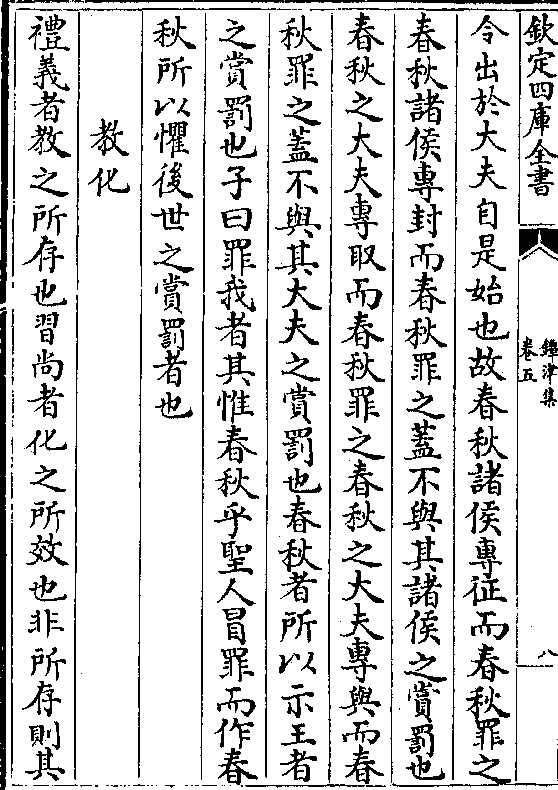 欽定四庫全書
鐔津集
卷五
八
令出於大夫自是始也故春秋諸侯專征而春秋罪之
春秋諸侯專封而春秋罪之蓋不與其諸侯之賞罰也
春秋之大夫專取而春秋罪之春秋之大夫專與而春
秋罪之蓋不與其大夫之賞罰也春秋者所以示王者
之賞罰也子曰罪我者其惟春秋乎聖人冒罪而作春
秋所以懼後世之賞罰者也
教化
禮義者教之所存也習尚者化之所效也非所存則其